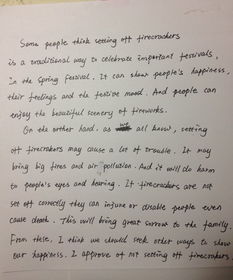 Some people think setting off firecrackers
is a traditional way to celebrate important festivals,
in the Spring Festival. It can show people's happiness,
their feelings and the festive mood. And people can
enjoy the beautiful scenery of fireworks.
On the orther hand. as we all know, setting
off firecrakers may cause a lot of trouble. It may
bring big fires and air pollution. And it will do harm
to people's eyes and hearing. If firecrackers are not
set off correctly they can injure or disable people even
cause death. This will bring great sorrow to the family.
From these, I think we should seek other ways to show
our happiness. I approve of not setting off firecrakers